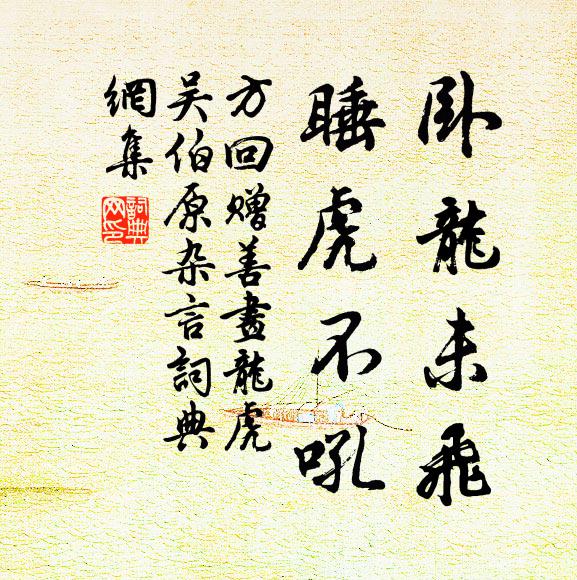 卧龍未飛
睡虎不吼
方回赠善畫龍虎
吴伯原杂言詞典
網集
詞典
网印